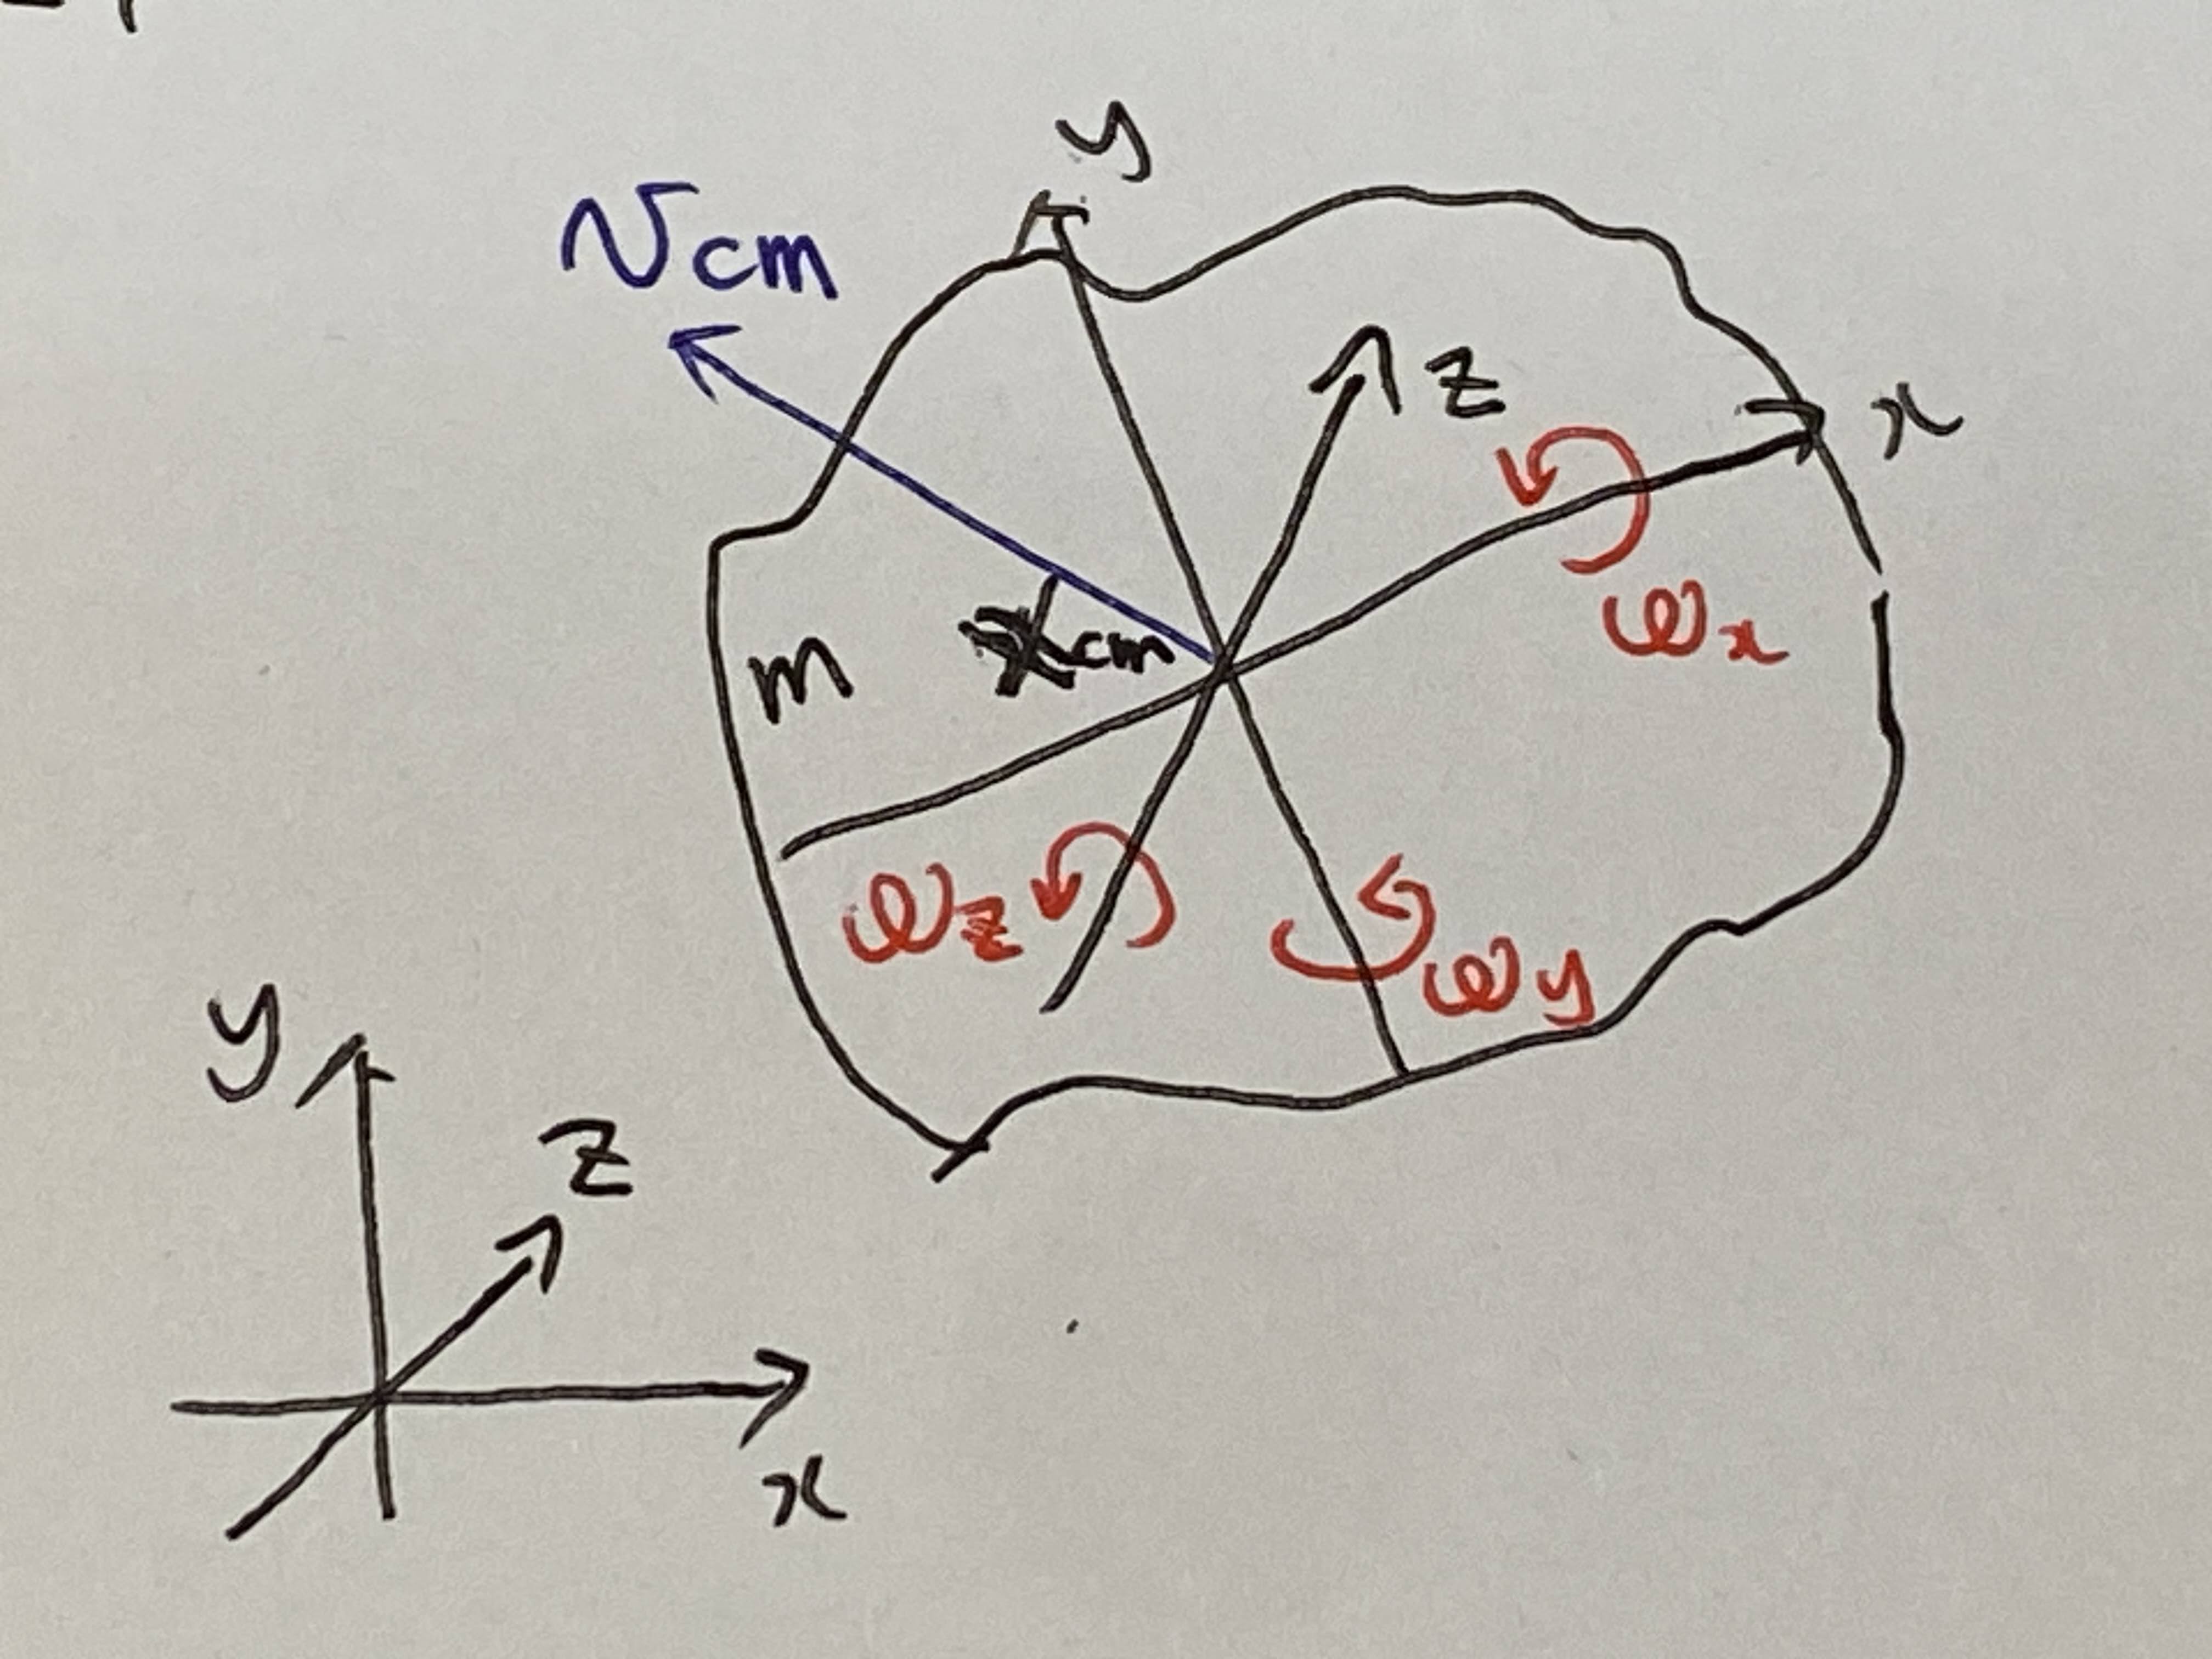 y
vcm
z
x
ωx
m
xcm
ωz
ωy
y
z
x